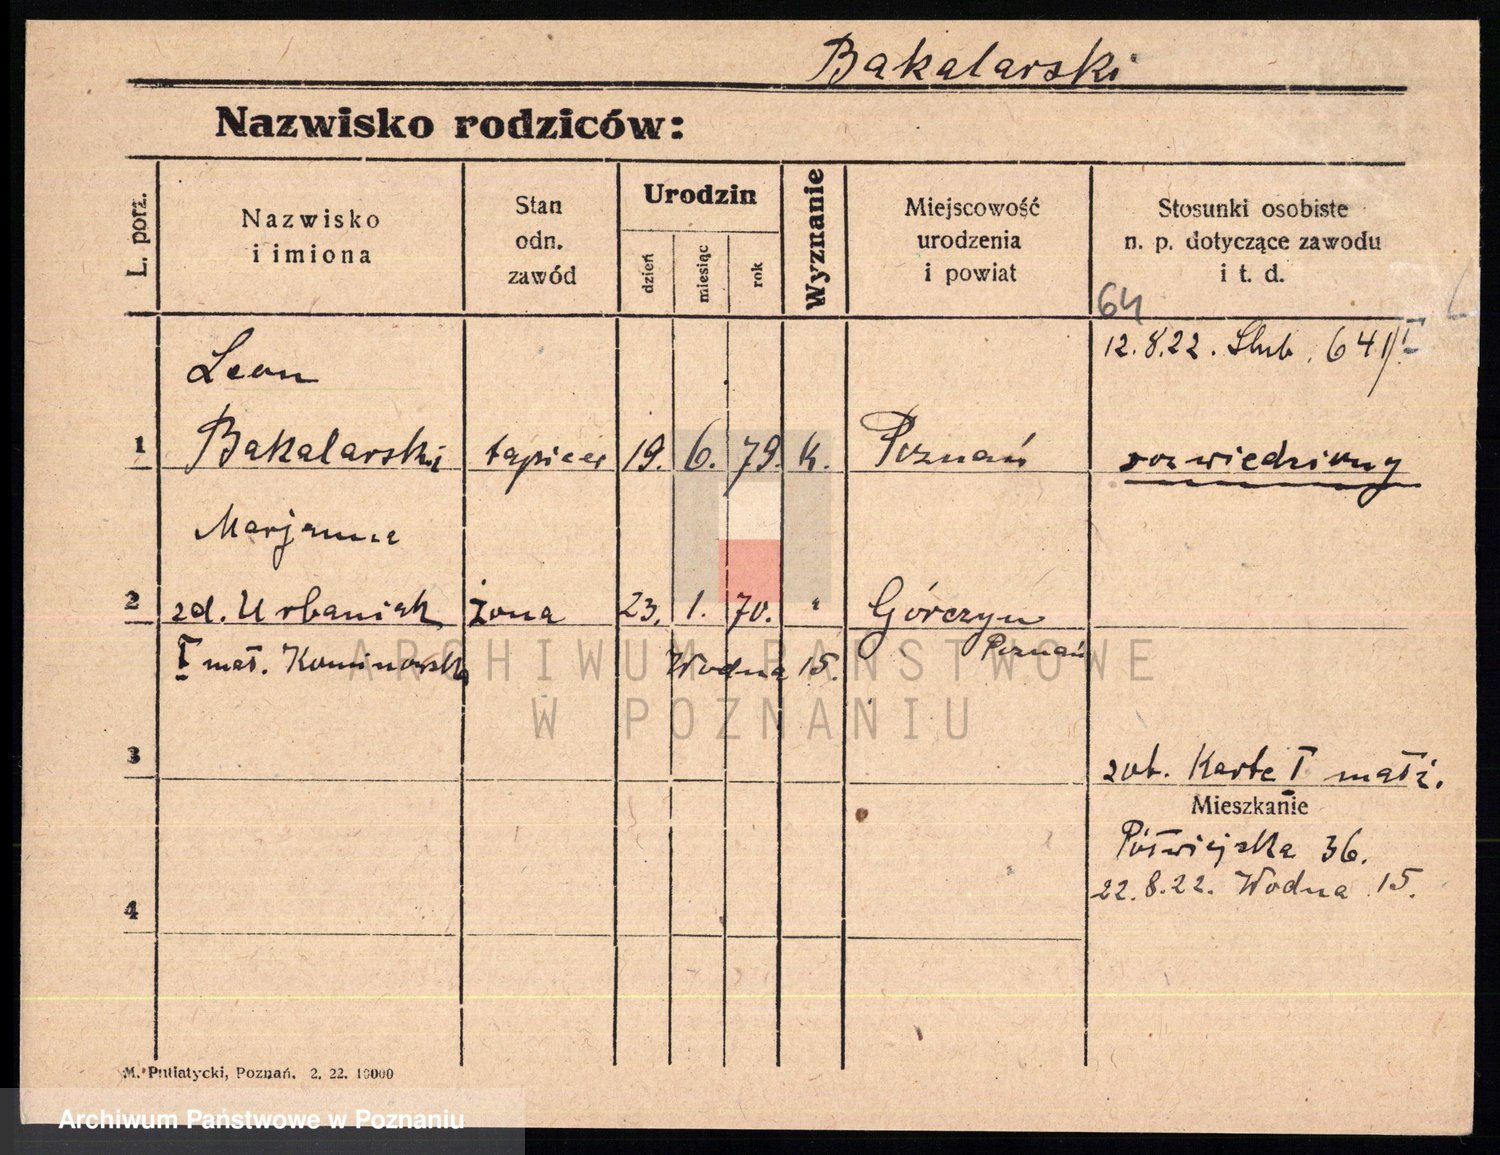 Bakalarski
Nazwisko rodziców:
L. porz.
Nazwisko
i imiona
Stan
odn.
zawód
Urodzin
dzień
miesiąc
rok
Wyznanie
Miejscowość
urodzenia
i powiat
Stosunki osobiste
n. p. dotyczące zawodu
i t. d.
64
12.8.22. Slub. 641/I
Leon
1 Bakalarski tapicer 19. 6. 79. k. Poznań rozwiedziony
Marjanna
2 zd. Urbaniak żona 23. 1. 70. " Górczyn
Poznań
I mał. Kominowska Wodna 15.
ARCHIWUM PAŃSTWOWE
W POZNANIU
3 zob. Kartę I małż.
Mieszkanie
Półwiejska 36.
22.8.22. Wodna 15.
4
M. Putiatycki, Poznań. 2. 22. 10000
Archiwum Państwowe w Poznaniu